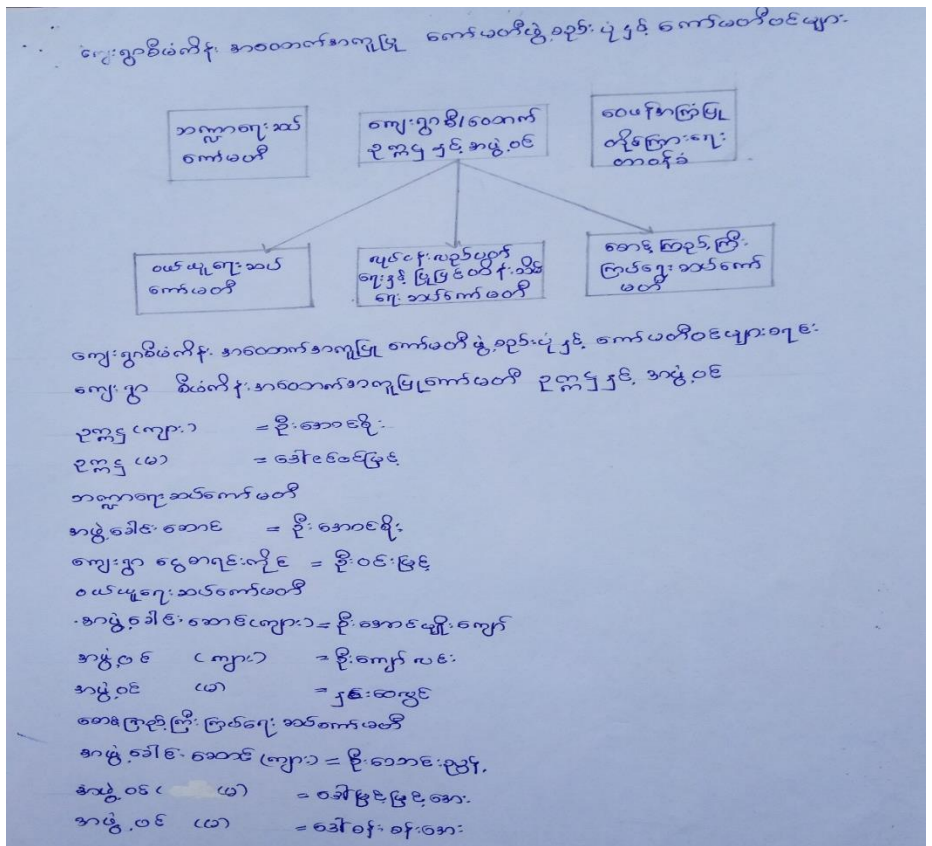 ကျေးရွာစီမံကိန်း အထောက်အကူပြု ကော်မတီဖွဲ့စည်းပုံ နှင့် ကော်မတီဝင်များ
ဘဏ္ဍာရေးဆပ်
ကော်မတီ
ကျေးရွာစီ/ထောက်
ဥက္ကဌ နှင့် အဖွဲ့ဝင်
ဝေဖန်အကြံပြု
တိုင်ကြားရေး
တာဝန်ခံ
ဝယ်ယူရေးဆပ်
ကော်မတီ
လုပ်ငန်းလည်ပတ်
ရေးနှင့် ပြုပြင်ထိန်းသိမ်း
ရေး ဆပ်ကော်မတီ
စောင့်ကြည့်ကြီး
ကြပ်ရေး ဆပ်ကော်
မတီ
ကျေးရွာစီမံကိန်း အထောက်အကူပြု ကော်မတီဖွဲ့စည်းပုံ နှင့် ကော်မတီဝင်များစာရင်း
ကျေးရွာ စီမံကိန်းအထောက်အကူပြုကော်မတီ ဥက္ကဌ နှင့် အဖွဲ့ဝင်
ဥက္ကဌ (ကျား) = ဦးအောင်စိုး
ဥက္ကဌ (မ) = ဒေါ်ခင်ဝင်မြင့်
ဘဏ္ဍာရေးဆပ်ကော်မတီ
အဖွဲ့ခေါင်းဆောင် = ဦးအောင်စိုး
ကျေးရွာ ငွေစာရင်းကိုင် = ဦးဝင်းမြင့်
ဝယ်ယူရေးဆပ်ကော်မတီ
အဖွဲ့ခေါင်းဆောင်(ကျား) = ဦးအောင်မျိုးကျော်
အဖွဲ့ဝင် (ကျား) = ဦးကျော်လင်း
အဖွဲ့ဝင် (မ) = နှင်းထွေလွင်
စောင့်ကြည့်ကြီးကြပ်ရေး ဆပ်ကော်မတီ
အဖွဲ့ခေါင်းဆောင် (ကျား) = ဦးသောင်းညွန့်
အဖွဲ့ဝင် (မ) = ဒေါ်မြင့်မြင့်အေး
အဖွဲ့ဝင် (မ) = ဒေါ်စန်းစန်းအေး